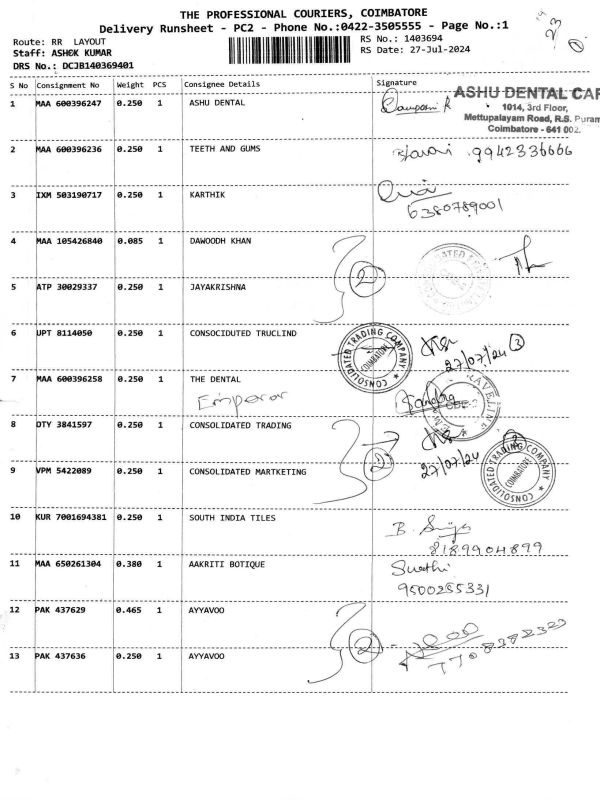 THE PROFESSIONAL COURIERS, COIMBATORE
Delivery Runsheet - PC2 - Phone No.:0422-3505555 - Page No.:1
Route: RR LAYOUT
RS No.: 1403694
Staff: ASHOK KUMAR
RS Date: 27-Jul-2024
DRS No.: DCJB140369401
23
S No Consignment No Weight PCS Consignee Details Signature
1 MAA 600396247 0.250 1 ASHU DENTAL
ASHU DENTAL CAR
1014, 3rd Floor,
Mettupalayam Road, R.S. Puram
Coimbatore - 641 002.
2 MAA 600396236 0.250 1 TEETH AND GUMS
9942336666
3 IXM 503190717 0.250 1 KARTHIK
6380789001
4 MAA 105426840 0.085 1 DAWOODH KHAN
2
5 ATP 30029337 0.250 1 JAYAKRISHNA
6 UPT 8114050 0.250 1 CONSOCIDUTED TRUCLIND
CONSOLIDATED TRADING COMPANY
COIMBATORE
27/07/24 3
7 MAA 600396258 0.250 1 THE DENTAL
Emperor
8 DTY 3841597 0.250 1 CONSOLIDATED TRADING
27/07/24
9 VPM 5422089 0.250 1 CONSOLIDATED MARTKETING
CONSOLIDATED TRADING COMPANY
COIMBATORE
10 KUR 7001694381 0.250 1 SOUTH INDIA TILES
8189904899
11 MAA 650261304 0.380 1 AAKRITI BOTIQUE
Swathi
9500255331
12 PAK 437629 0.465 1 AYYAVOO
2
7708382323
13 PAK 437636 0.250 1 AYYAVOO